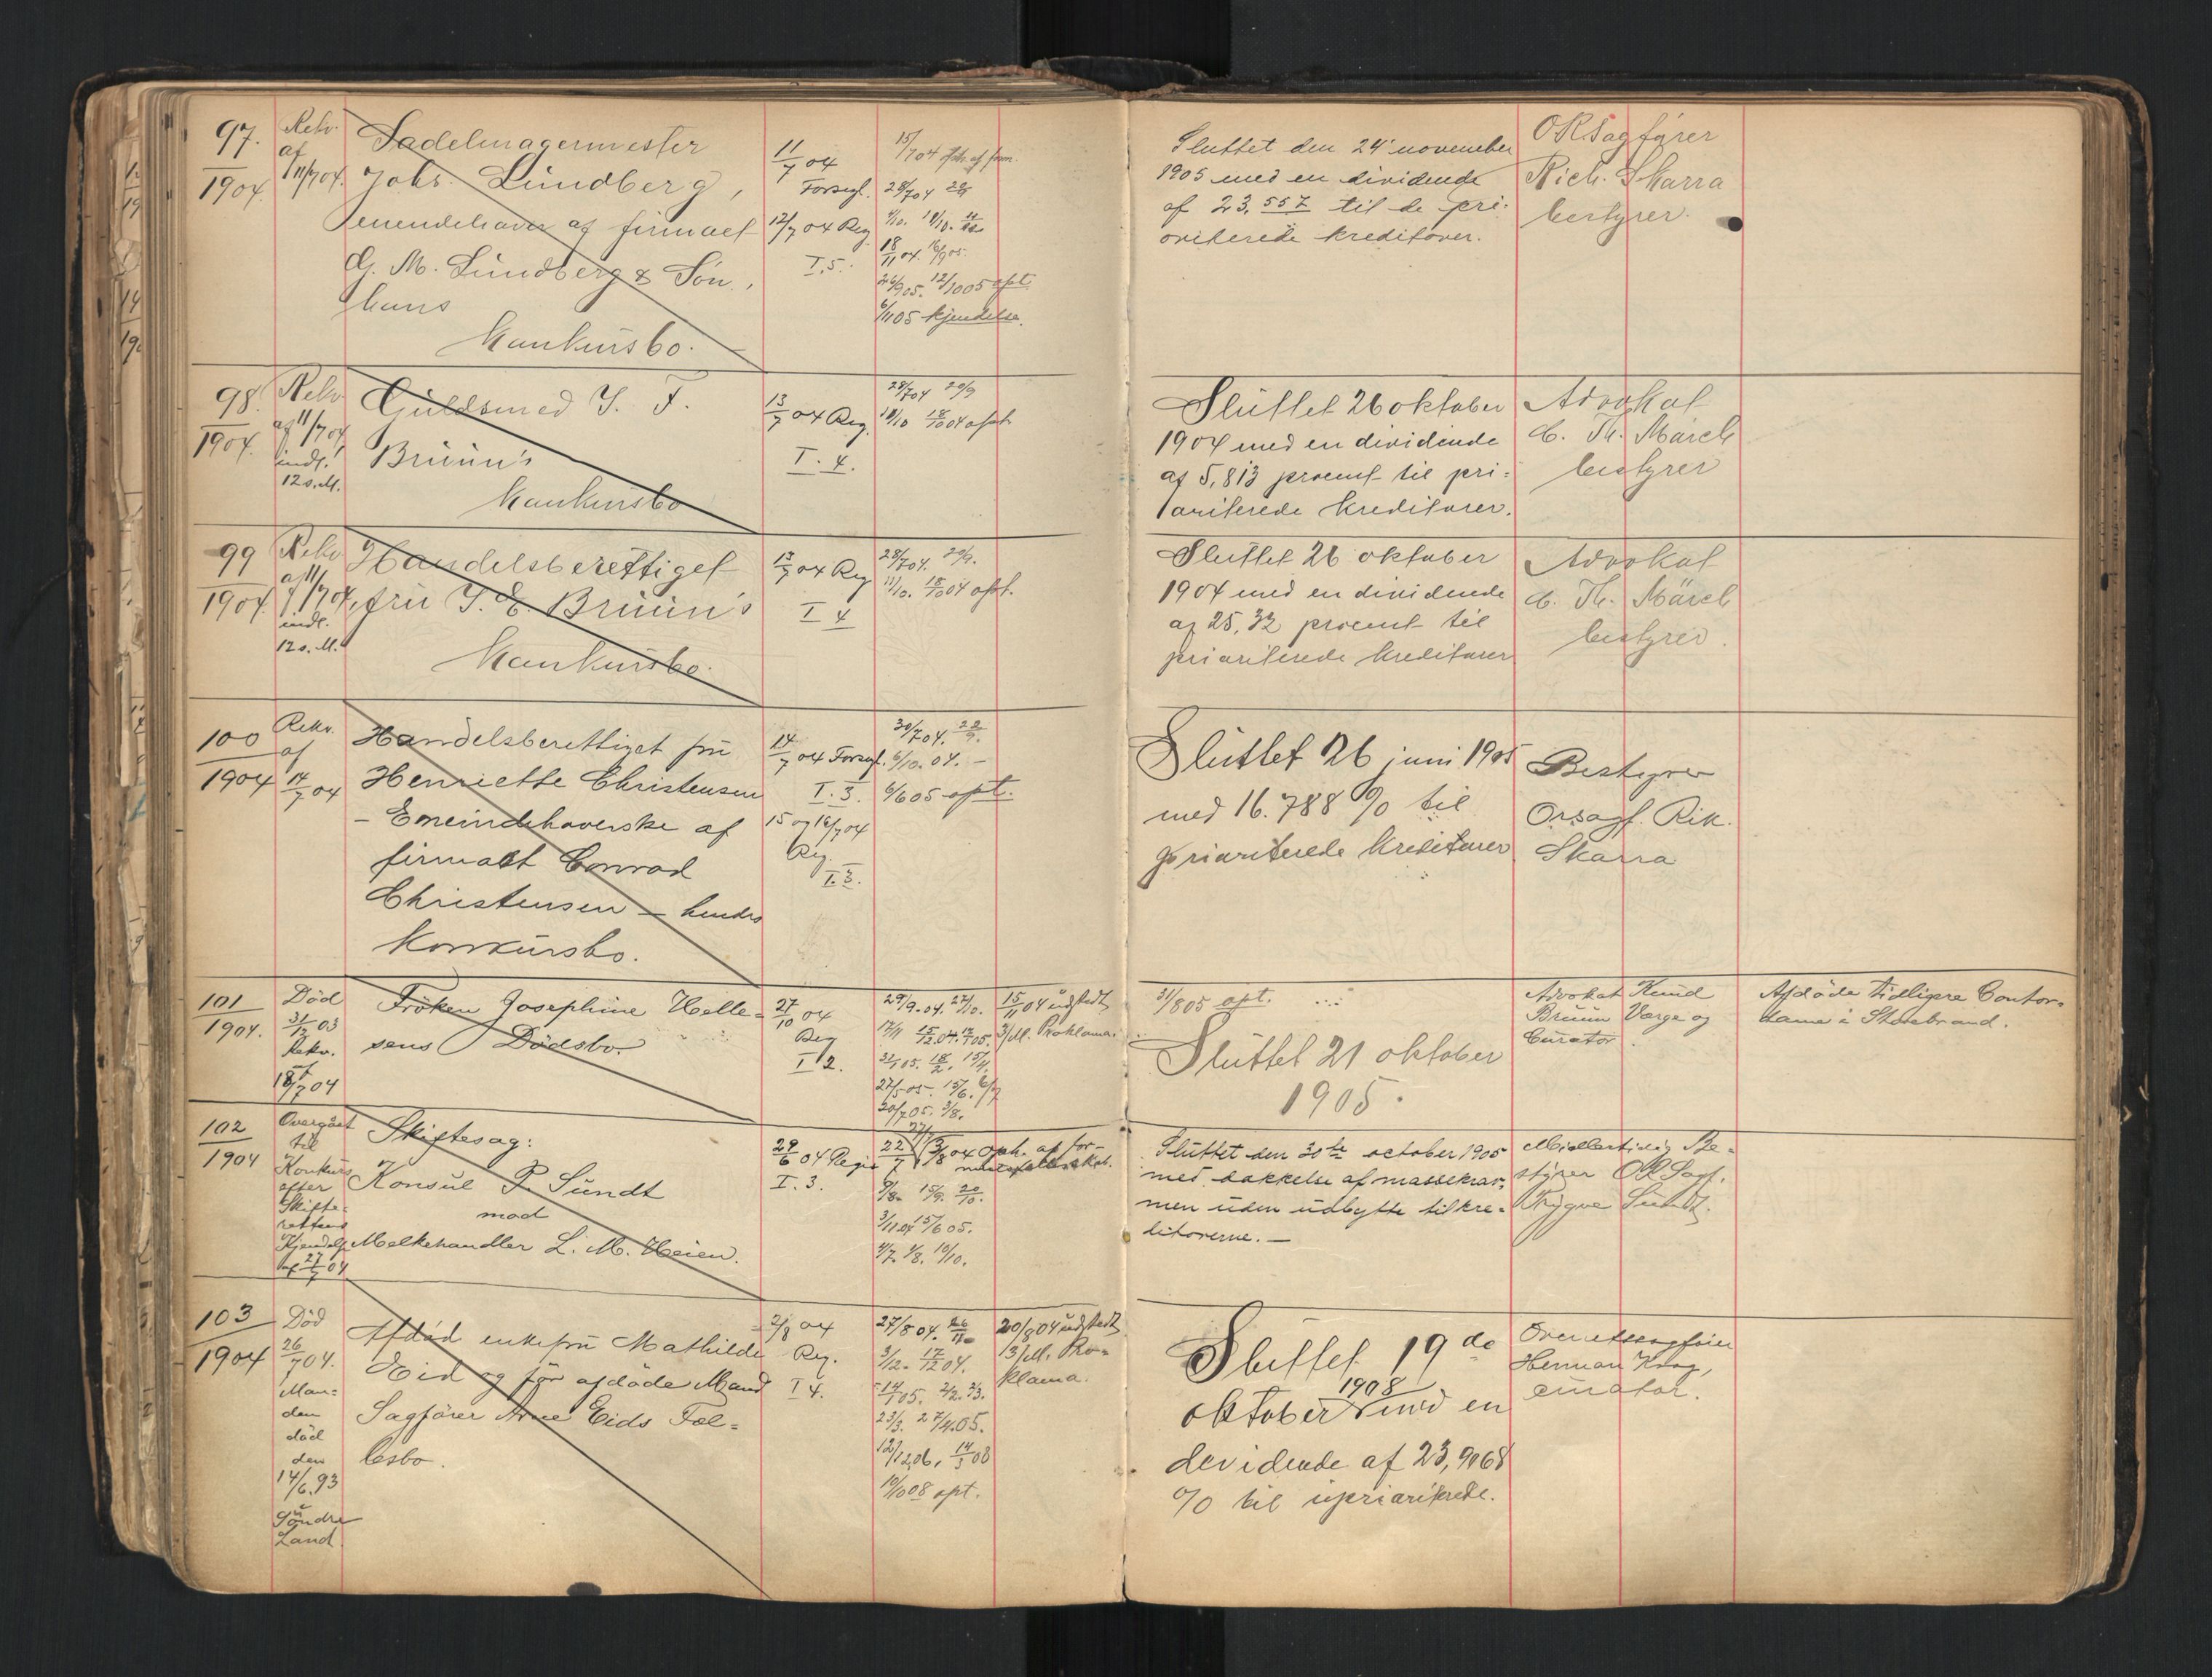 97.
1904.
Rekv.
af
11/7 04.
Sadelmagermester
Johs. Lundberg,
eneindehaver af firmaet
G. M. Lundberg & Søn,
hans
Konkursbo.
11/7 04
Forsegl.
12/7 04 Reg
I. 5.
15/7 04
28/7 04
18/11 04. 16/9 05.
26/9 05. 12/10 05 opt.
6/11 05 kjendelse.
Sluttet den 24' november
1905 med en dividende
af 23,557 til de pri-
oriterede kreditorer.
ORSagfører
Rich. Skarra
bestyrer.
98.
1904.
Rekv
af 11/7 04
indl.
12 s. M.
Guldsmed J. F.
Bruun's
Konkursbo
13/7 04 Reg.
I. 4.
28/7 04 20/9
11/10 18/10 04 opt.
Sluttet 26 oktober
1904 med en dividende
af 5,813 procent til pri-
oriterede kreditorer.
Advokat
C. Th. March
bestyrer
99
1904.
Rekv
af 11/7 04,
indl.
12 s. M.
Handelsberettiget
fru J. E. Bruun's
Konkursbo.
13/7 04 Reg
I 4
28/7 04. 20/9.
11/10. 18/10 04 opt.
Sluttet 26 oktober
1904 med en dividende
af 25,32 procent til
prioriterede kreditorer
Advokat
C. Th. March
bestyrer.
100
1904
Rekv.
af
14/7 04
Handelsberettiget fru
Henriette Christensen
- Eneindehaverske af
firmaet Conrad
Christensen - hendes
Konkursbo.
14/7 04 Forsegl.
I. 3.
15 og 16/7 04
Reg.
I. 3.
30/7 04. 22/9.
6/10. 04. -
6/6 05 opt.
Sluttet 26 juni 1905
med 16.788 % til
prioriterede kreditorer
Bestyrer
Orsagf. Rik.
Skarra
101
1904.
Död
31/12 03
Rekv.
18/7 04
Fröken Josephine Helle-
sens Dödsbo.
27/10 04
Reg
I 2.
29/9. 04. 27/10.
15/11 04 udstedt
3/M. Proklama.
31/8 05 opt.
Sluttet 21 oktober
1905.
Advokat Knud
Bruun Værge og
Curator.
Afdöde tidligere Contor-
dame i Storebrand.
102
1904
Overgået
til
Konkurs
efter
Skifte-
rettens
Kjendelse
af 27/7 04
Skiftesag:
Konsul P. Sundt
mod
Melkehandler L. M. Heien.
29/6 04 Regis
I. 3.
9/8. 15/9. 20/10.
3/11 04 15/6 05.
4/7. 1/8. 10/10.
Sluttet den 30te october 1905
med dækkelse af massekrav,
men uden udbytte til kre-
ditorerne. -
Midlertidig Be-
styrer OR Sagf.
Trygve Sundt.
103
1904
Död
26/7 04.
Man-
den
död
den
14/6. 93
i
Söndre
Land
Afdöd enkefru Mathilde
Eid og för afdöde Mand
Sagförer Arne Eids Fæl-
lesbo.
2/8 04
Reg.
I 4.
27/8 04.
3/12. 17/12 04.
14/1 05. 2/2. 3/3.
23/3. 27/4 05.
10/10 08 opt.
20/8 04 udstedt
3/M. Pro-
klama.
Sluttet 19de
oktober 1908 med en
devidende af 23,9068
% til uprioriterede.
Overretssagfører
Herman Krag,
curator.